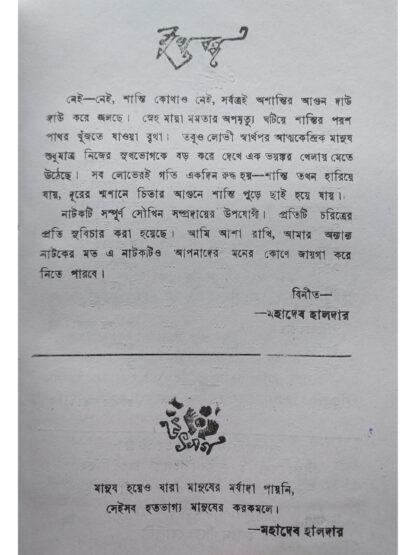 নেই—নেই, শান্তি কোথাও নেই, সর্বত্রই অশান্তির আগুন দাউ
দাউ করে জ্বলছে। স্নেহ মায়া মমতার অপমৃত্যু ঘটিয়ে শান্তির পরশ
পাথর খুঁজতে যাওয়া বৃথা। তবুও লোভী স্বার্থপর আত্মকেন্দ্রিক মানুষ
শুধুমাত্র নিজের সুখভোগকে বড় করে দেখে এক ভয়ঙ্কর খেলায় মেতে
উঠেছে। সব লোভেরই গতি একদিন রুদ্ধ হয়—শান্তি তখন হারিয়ে
যায়, দূরের শ্মশানে চিতার আগুনে শান্তি পুড়ে ছাই হয়ে যায়।
নাটকটি সম্পূর্ণ সৌখিন সম্প্রদায়ের উপযোগী। প্রতিটি চরিত্রের
প্রতি সুবিচার করা হয়েছে। আমি আশা রাখি, আমার অন্যান্য
নাটকের মত এ নাটকটিও আপনাদের মনের কোণে জায়গা করে
নিতে পারবে।
বিনীত—
—মহাদেব হালদার
উৎসর্গ
মানুষ হয়েও যারা মানুষের মর্যাদা পায়নি,
সেইসব হতভাগ্য মানুষের করকমলে।
—মহাদেব হালদার